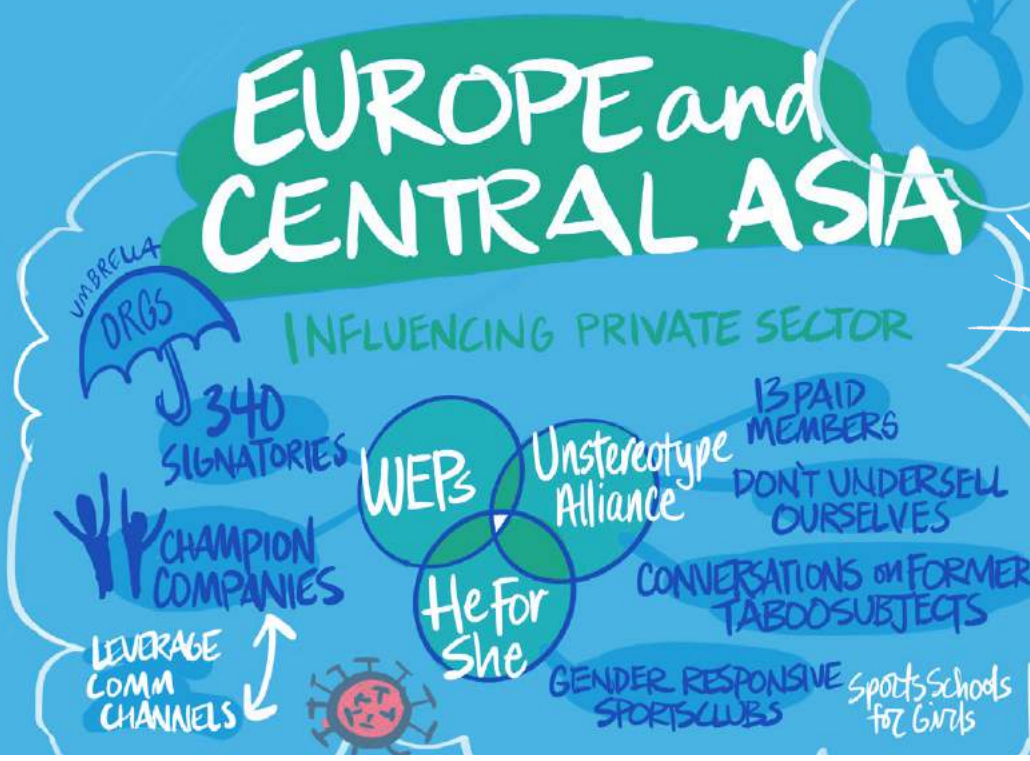 EUROPE and
CENTRAL ASIA
UMBRELLA
ORGS
INFLUENCING PRIVATE SECTOR
340
SIGNATORIES
CHAMPION
COMPANIES
LEVERAGE
COMM
CHANNELS
WEPs
Unstereotype
Alliance
HeFor
She
13 PAID
MEMBERS
DON'T UNDERSELL
OURSELVES
CONVERSATIONS on FORMER
TABOO SUBJECTS
GENDER RESPONSIVE
SPORTSCLUBS
Sports Schools
for Girls